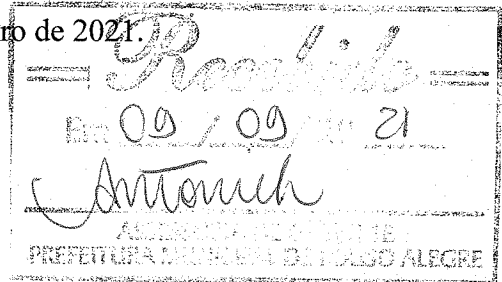 ro de 2021.
Recebido
Em 09 / 09 / 21
PREFEITURA MUNICIPAL DE POUSO ALEGRE